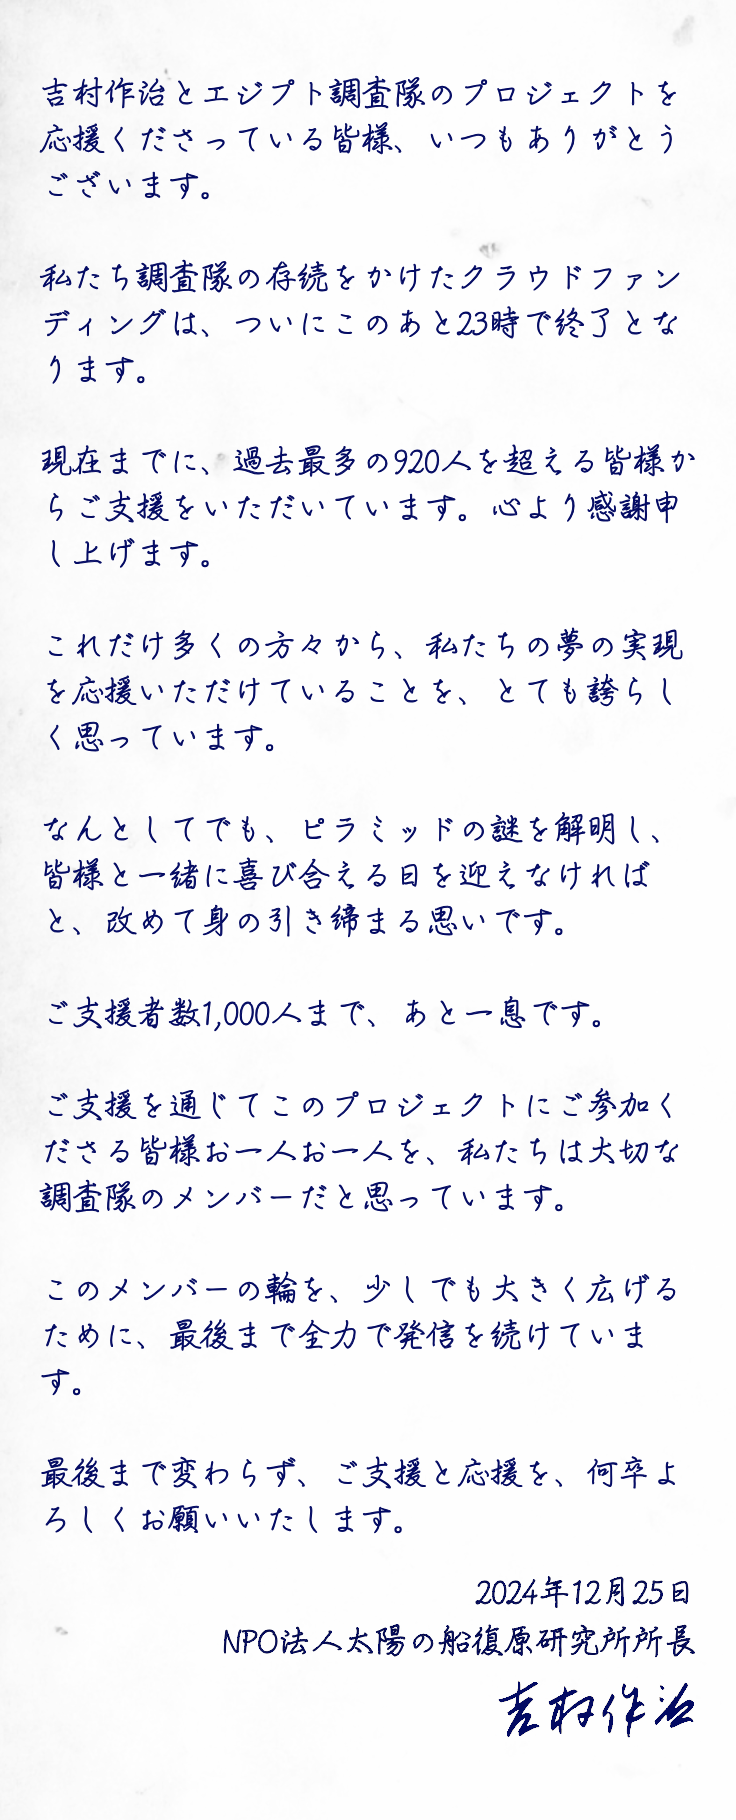 吉村作治とエジプト調査隊のプロジェクトを
応援くださっている皆様、いつもありがとう
ございます。
私たち調査隊の存続をかけたクラウドファン
ディングは、ついにこのあと23時で終了とな
ります。
現在までに、過去最多の920人を超える皆様か
らご支援をいただいています。心より感謝申
し上げます。
これだけ多くの方々から、私たちの夢の実現
を応援いただけていることを、とても誇らし
く思っています。
なんとしてでも、ピラミッドの謎を解明し、
皆様と一緒に喜び合える日を迎えなければ
と、改めて身の引き締まる思いです。
ご支援者数1,000人まで、あと一息です。
ご支援を通じてこのプロジェクトにご参加く
ださる皆様お一人お一人を、私たちは大切な
調査隊のメンバーだと思っています。
このメンバーの輪を、少しでも大きく広げる
ために、最後まで全力で発信を続けていま
す。
最後まで変わらず、ご支援と応援を、何卒よ
ろしくお願いいたします。
2024年12月25日
NPO法人太陽の船復原研究所所長
吉村作治